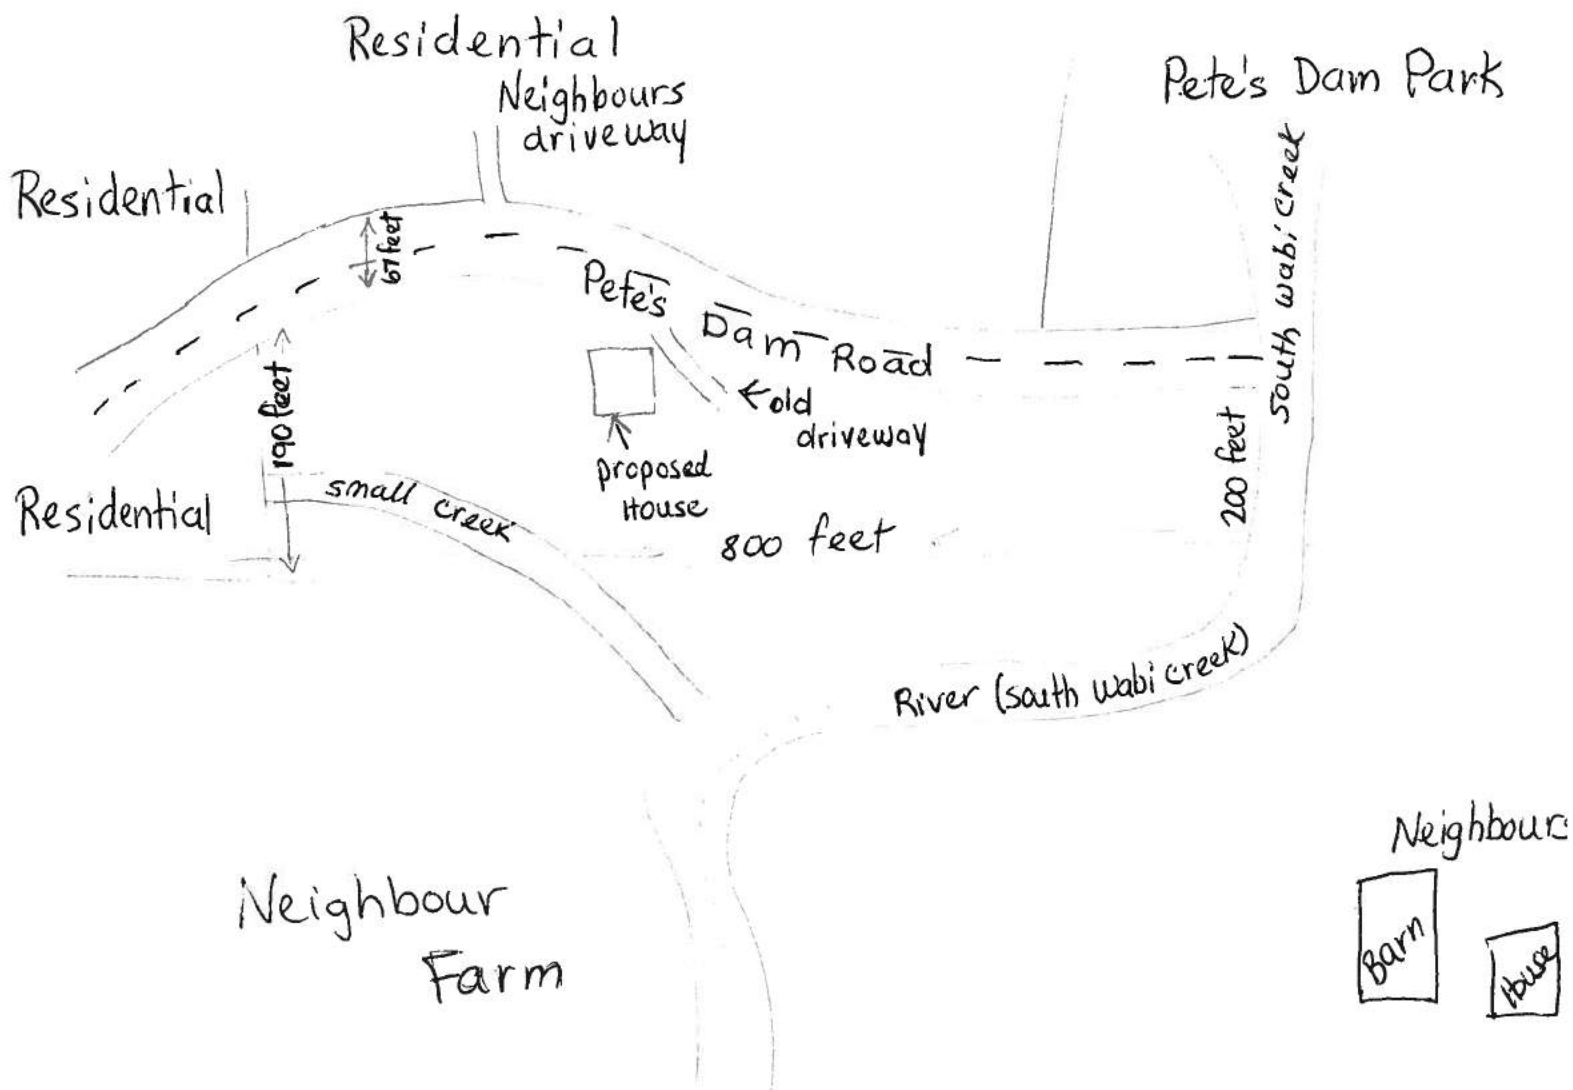 Residential
Neighbours
driveway
Pete's Dam Park
Residential
67 feet
South wabi creek
Pete's Dam Road
190 feet
old
driveway
proposed
House
200 feet
Residential
small creek
800 feet
River (south wabi creek)
Neighbours
Neighbour
Farm
Barn
House